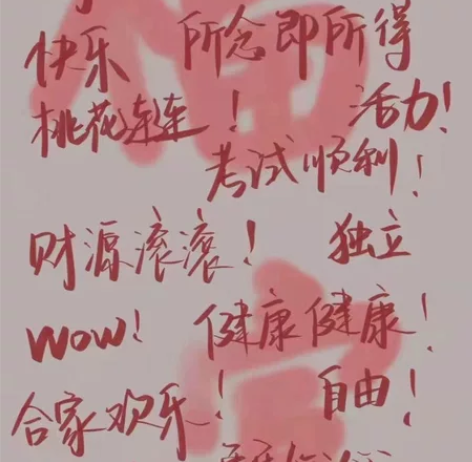 快乐 所念即所得
桃花连连! 活力!
考试顺利!
财源滚滚! 独立
wow! 健康健康!
合家欢乐! 自由!